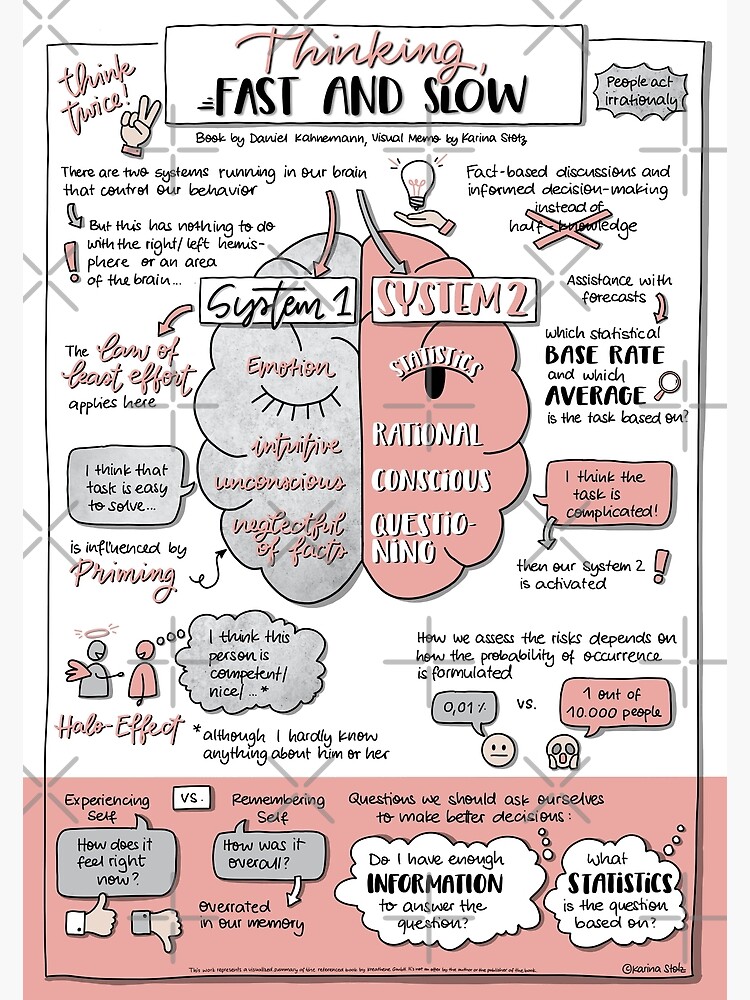 Thinking,
FAST AND SLOW
think
twice!
People act
irrationaly
Book by Daniel Kahnemann, Visual Memo by Karina Stolz
There are two systems running in our brain
that control our behavior
But this has nothing to do
with the right/left hemis-
phere or an area
of the brain...
!
Fact-based discussions and
informed decision-making
instead of
half-knowledge
System 1
SYSTEM 2
The law of
least effort
applies here
Emotion
intuitive
unconscious
neglectful
of facts
STATISTICS
RATIONAL
CONSCIOUS
QUESTIO-
NING
Assistance with
forecasts
which statistical
BASE RATE
and which
AVERAGE
is the task based on?
I think that
task is easy
to solve...
is influenced by
Priming
I think the
task is
complicated!
then our system 2
is activated
!
I think this
person is
competent/
nice/...*
Halo-Effect
*although I hardly know
anything about him or her
How we assess the risks depends on
how the probability of occurrence
is formulated
0,01%
vs.
1 out of
10.000 people
Experiencing
Self
vs.
Remembering
Self
How does it
feel right
now?
How was it
overall?
Overrated
in our memory
Questions we should ask ourselves
to make better decisions:
Do I have enough
INFORMATION
to answer the
question?
What
STATISTICS
is the question
based on?
This work represents a visualized summary of the referenced book by kreathene GmbH. It's not an offer by the author or the publisher of the book.
©Karina Stolz